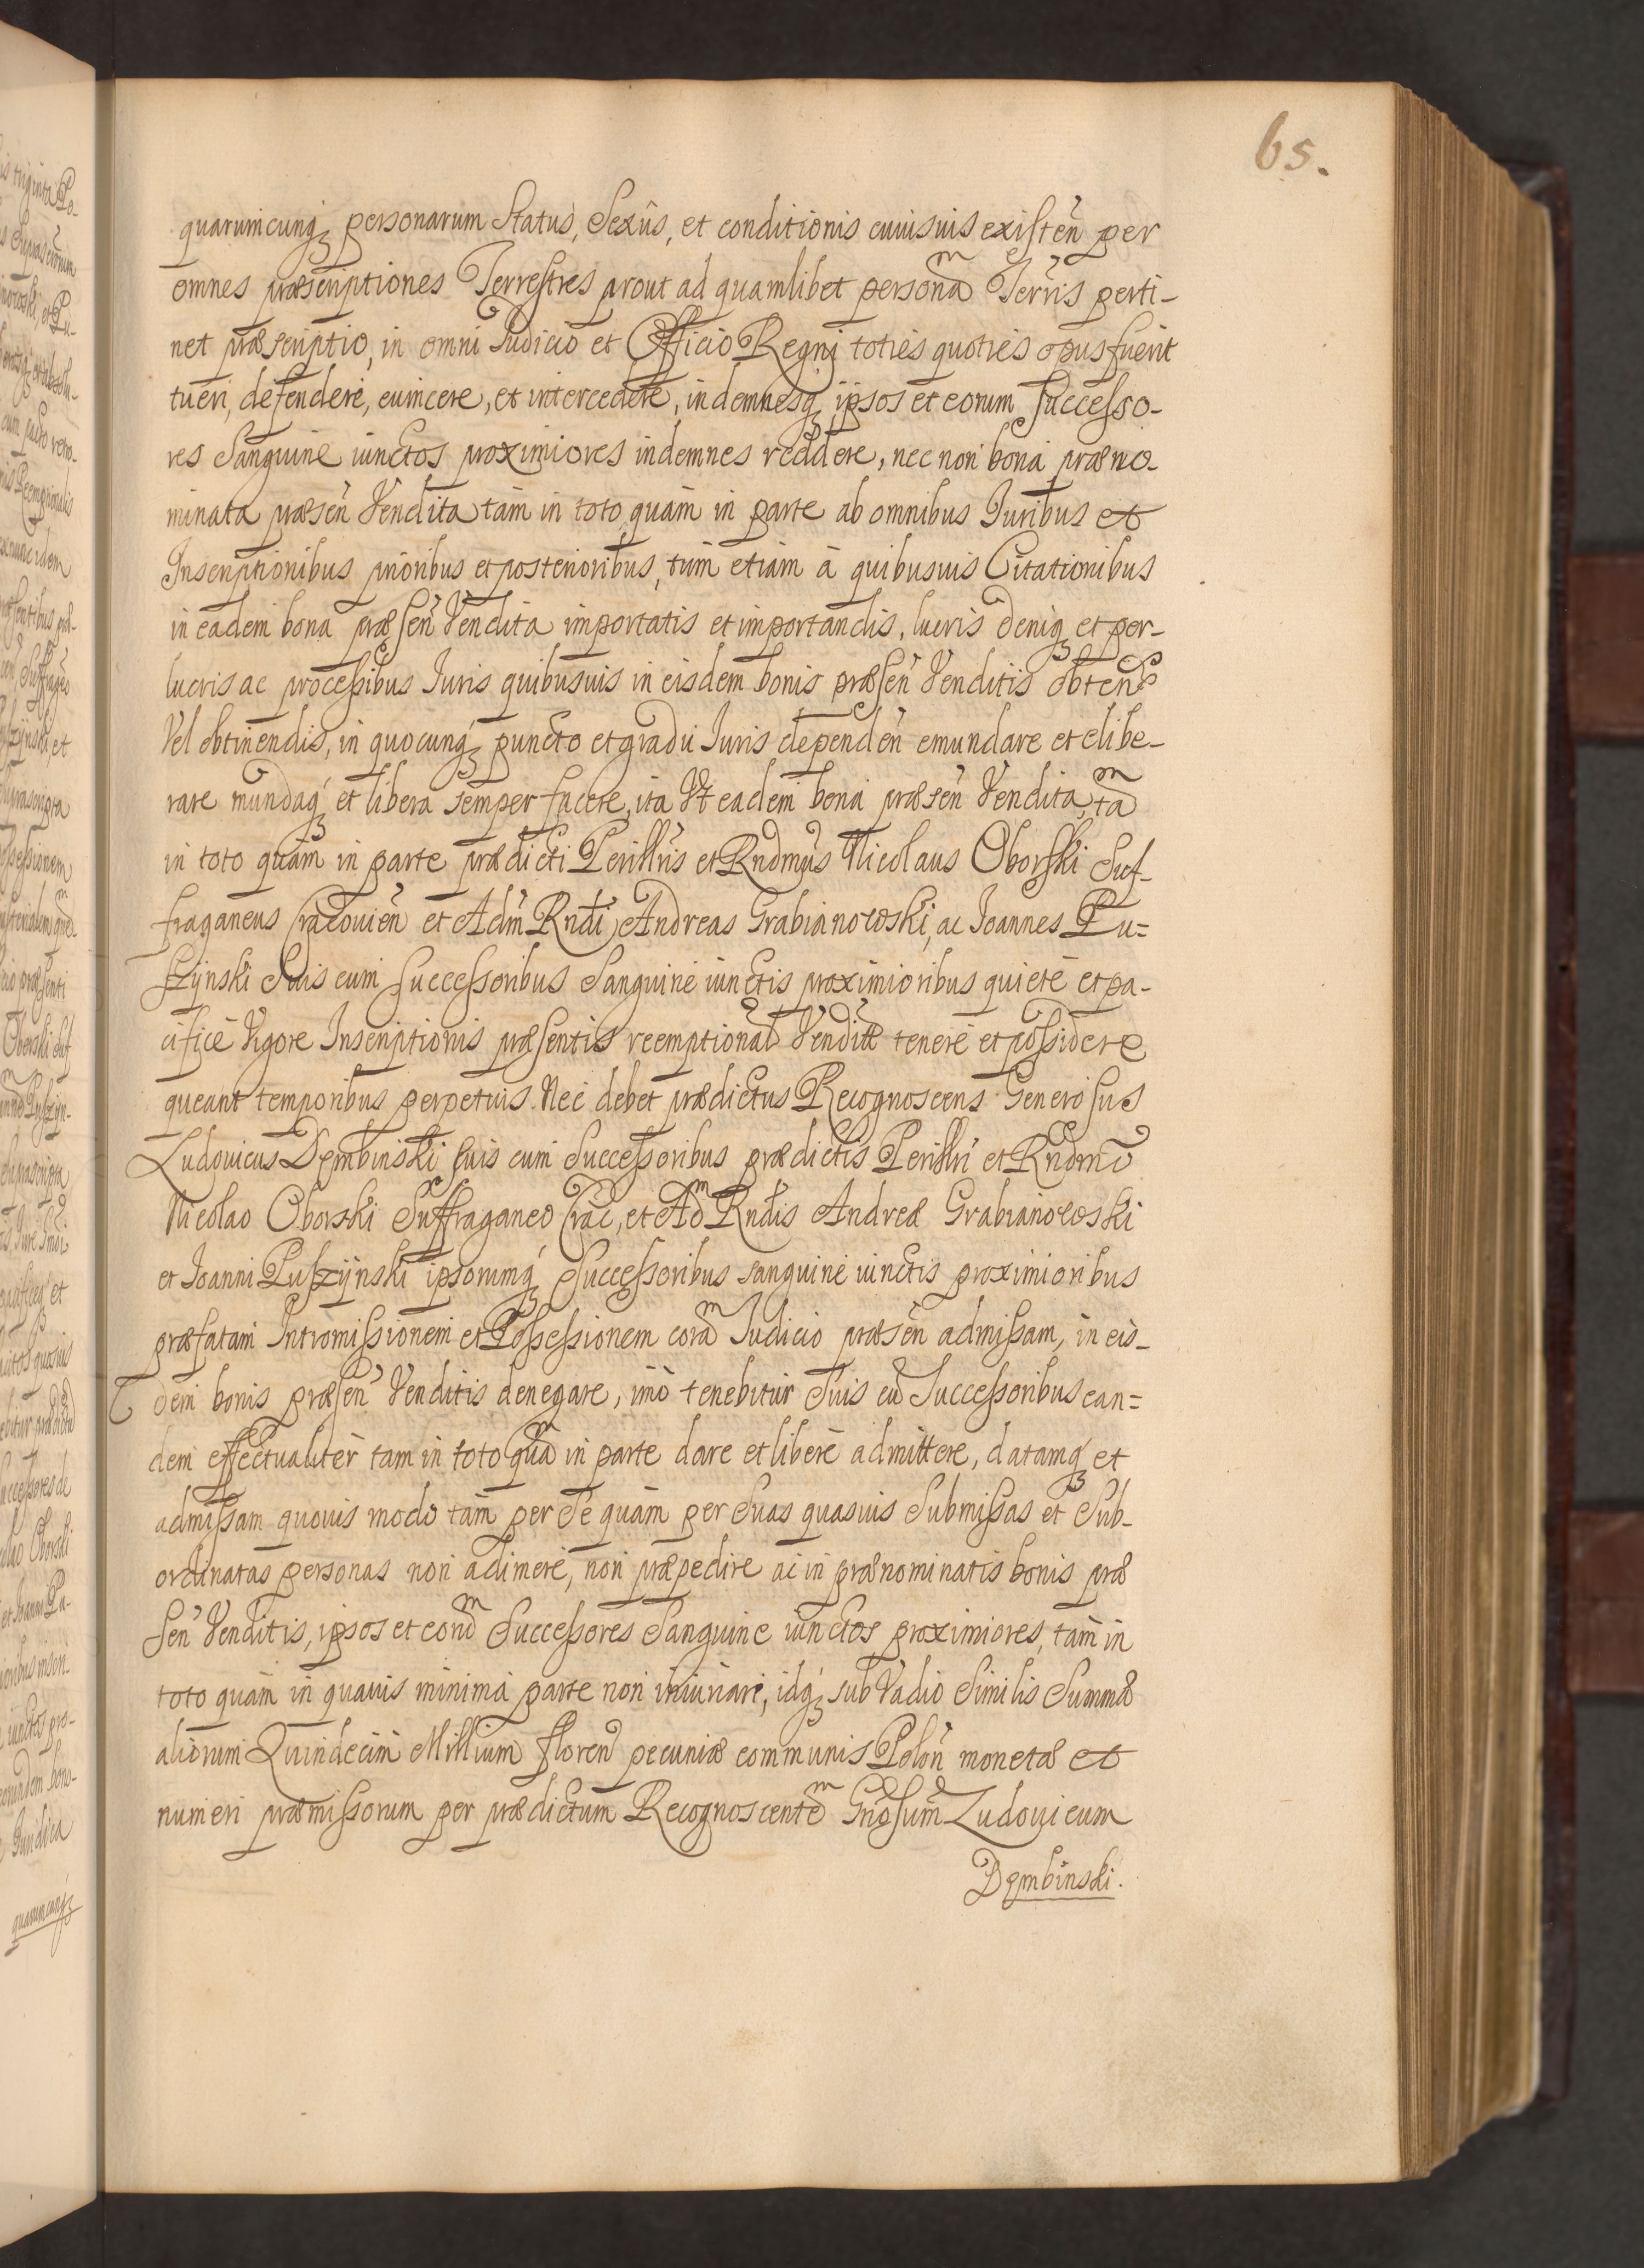 65.
quarumcunq́ personarum Status, Sexûs, et conditionis cuiusuis existeñ per
omnes præscriptiones Terrestres prout ad quamlibet personã Terris perti-
net præscriptio, in omni Judicio et Officio Regnj toties quoties opus fuerit
tueri, defendere, euincere, et intercedere, indemnesq́ ipsos et eorum Successo-
res Sanguine iunctos proximiores indemnes reddere, nec non bona præno-
minata præseñ Vendita tàm in toto quàm in parte ab omnibus Juribus et
Inscriptionibus prioribus et posterioribus, tùm etiàm à quibusuis Citationibus
in eadem bona præseñ Vendita importatis et importandis, lucris deniq́ et per-
lucris ac processibus Juris quibusuis in eisdem bonis præseñ Venditis obteñ
Vel obtinendis, in quocunq́ puncto et gradu Juris dependeñ emundare et elibe-
rare mundaq́ et libera semper facere, ita Vt eadem bona præseñ Vendita, tã
in toto quàm in parte prædicti Perillris et Rndmus Nicolaus Oborski Suf-
fraganeus Cracouieñ et Adm̃ Rndi Andreas Grabianowski, ac Joannes Pu=
szÿnski Suis cum Successoribus Sanguine iunctis proximioribus quietè et pa-
cificè Vigore Inscriptionis præsentis reemptional Venditæ tenere et possidere
queant temporibus perpetuis. Nec debet prædictus Recognoscens Generosus
Ludouicus Dembinski suis cum Successoribus prædictis Perillri et Rndmõ
Nicolao Oborski Suffraganeo Crac, et Adm̃ Rndis Andreæ Grabianowski
et Joanni Puszÿnski ipsorumq́ Successoribus sanguine iunctis proximioribus
præfatam Intromissionem et Possessionem corã Judicio præseñ admissam, in eis-
dem bonis præseñ Venditis denegare, imò tenebitur Suis cũ Successoribus ean=
dem effectualiter tam in toto quã in parte dare et liberè admittere, datamq́ et
admissam quouis modo tàm per Se quàm per Suas quasuis Submissas et Sub-
ordinatas personas non adimere, non præpedire ac in prænominatis bonis præ
Señ Venditis, ipsos et eorũ Successores Sanguine iunctos proximiores, tàm in
toto quàm in quauis minima parte non iniuriari, idq́ sub Vadio Similis Summæ
aliorum Quindecim Millium floreñ pecuniæ communis Poloñ monetæ et
numeri præmissorum per prædictum Recognoscentẽ Gnosum Ludouicum
Dembinski.